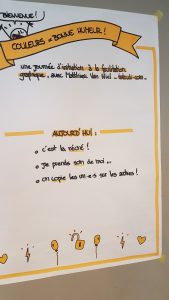 BIENVENUE !
COULEURS + BONNE HUMEUR !
une journée d'initiation à la facilitation
graphique, avec Matthieu Van Niel
AUJOURD'HUI :
c'est la récré !
je prends soin de moi...
on copie les un·e·s sur les autres !